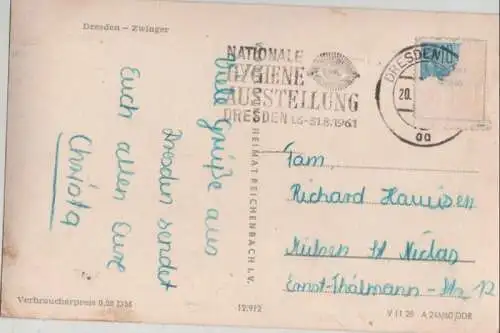 Dresden – Zwinger
Viele Grüße aus
Dresden sendet
Euch allen Eure
Christa
Verbraucherpreis 0,20 DM
HEIMAT REICHENBACH I. V.
12/912
NATIONALE
HYGIENE
AUSSTELLUNG
DRESDEN 1.6-31.8.1961
DRESDEN
20.
aa
Fam
Richard
St Niclas
Ernst-Thälmann-Str 12
V 11 28 A 260/60 DDR